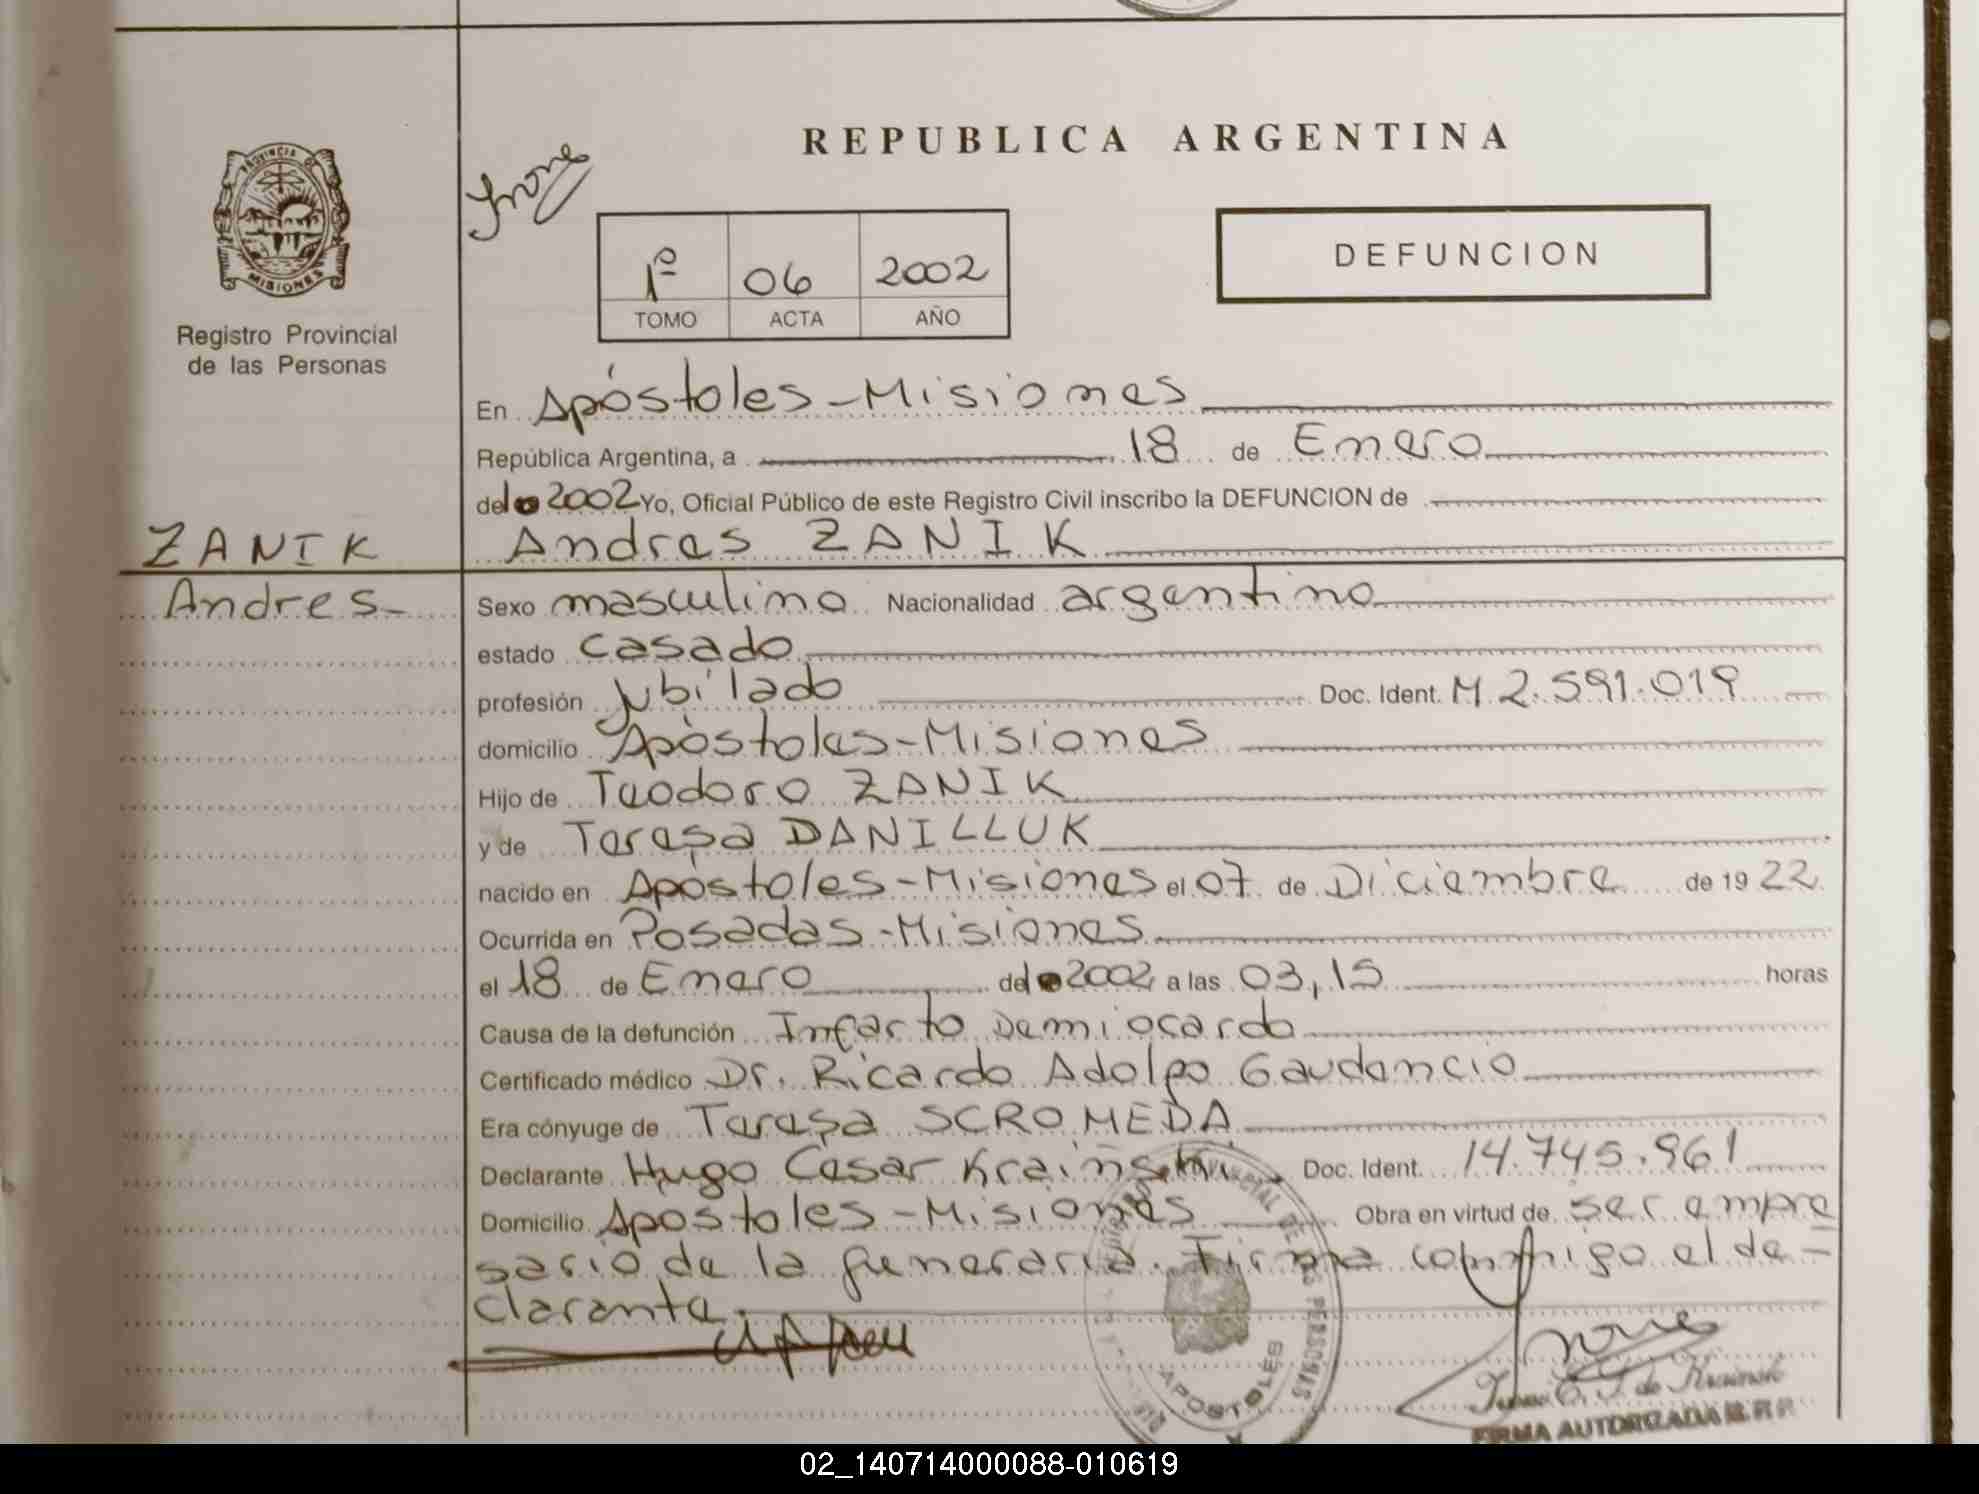 REPUBLICA ARGENTINA
PROVINCIA DE
MISIONES
Registro Provincial
de las Personas
Irone
1º 06 2002
TOMO ACTA AÑO
DEFUNCION
En Apóstoles-Misiones
República Argentina, a 18 de Enero
del 2002 Yo, Oficial Público de este Registro Civil inscribo la DEFUNCION de
ZANIK
Andres ZANIK
Andres
Sexo masculino Nacionalidad argentino
estado casado
profesión jubilado Doc. Ident. M 2.591.019
domicilio Apóstoles-Misiones
Hijo de Teodoro ZANIK
y de Teresa DANILLUK
nacido en Apóstoles-Misiones el 07 de Diciembre de 1922
Ocurrida en Posadas-Misiones
el 18 de Enero del 2002 a las 03,15 horas
Causa de la defunción Infarto Demiocardo
Certificado médico Dr. Ricardo Adolfo Gaudencio
Era cónyuge de Teresa SCROMEDA
Declarante Hugo Cesar Krainski Doc. Ident. 14.745.961
Domicilio Apostoles-Misiones Obra en virtud de ser empre
sario de la funeraria. Firma conmigo el de-
clarante.
APOSTOLES
de Krainski
FIRMA AUTORIZADA R.P.P.
02_140714000088-010619